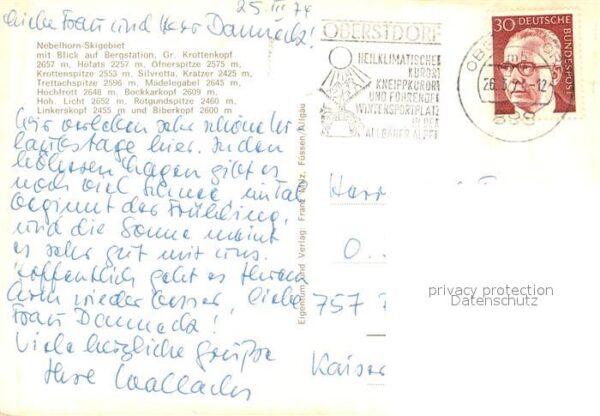 25. III 74
Liebe Frau und Herr Dannecke!
Nebelhorn-Skigebiet
mit Blick auf Bergstation, Gr. Krottenkopf
2657 m, Höfats 2257 m, Öfnerspitze 2575 m,
Krottenspitze 2553 m, Silvretta, Krätzer 2425 m,
Trettachspitze 2596 m, Mädelegabel 2645 m,
Hochfrott 2648 m, Bockkarkopf 2609 m,
Hoh. Licht 2652 m, Rotgundspitze 2460 m,
Linkerskopf 2455 m und Biberkopf 2600 m
Wir verleben sehr schöne Ur
laubstage hier. In den
höheren Lagen gibt es
noch viel Schnee im Tal
beginnt der Frühling,
und die Sonne meint
es sehr gut mit uns.
Hoffentlich geht es Ihnen
schon wieder besser, liebe
Frau Dannecke!
Viele herzliche Grüße
Ihre
Eigentum und Verlag: Franz Milz, Füssen/Allgäu
OBERSTDORF
HEILKLIMATISCHER
KURORT
KNEIPPKURORT
UND FÜHRENDER
WINTERSPORTPLATZ
IN DEN
ALLGÄUER ALPEN
30 DEUTSCHE
BUNDESPOST
898
Herr
O..
757
Kaiser
privacy protection
Datenschutz